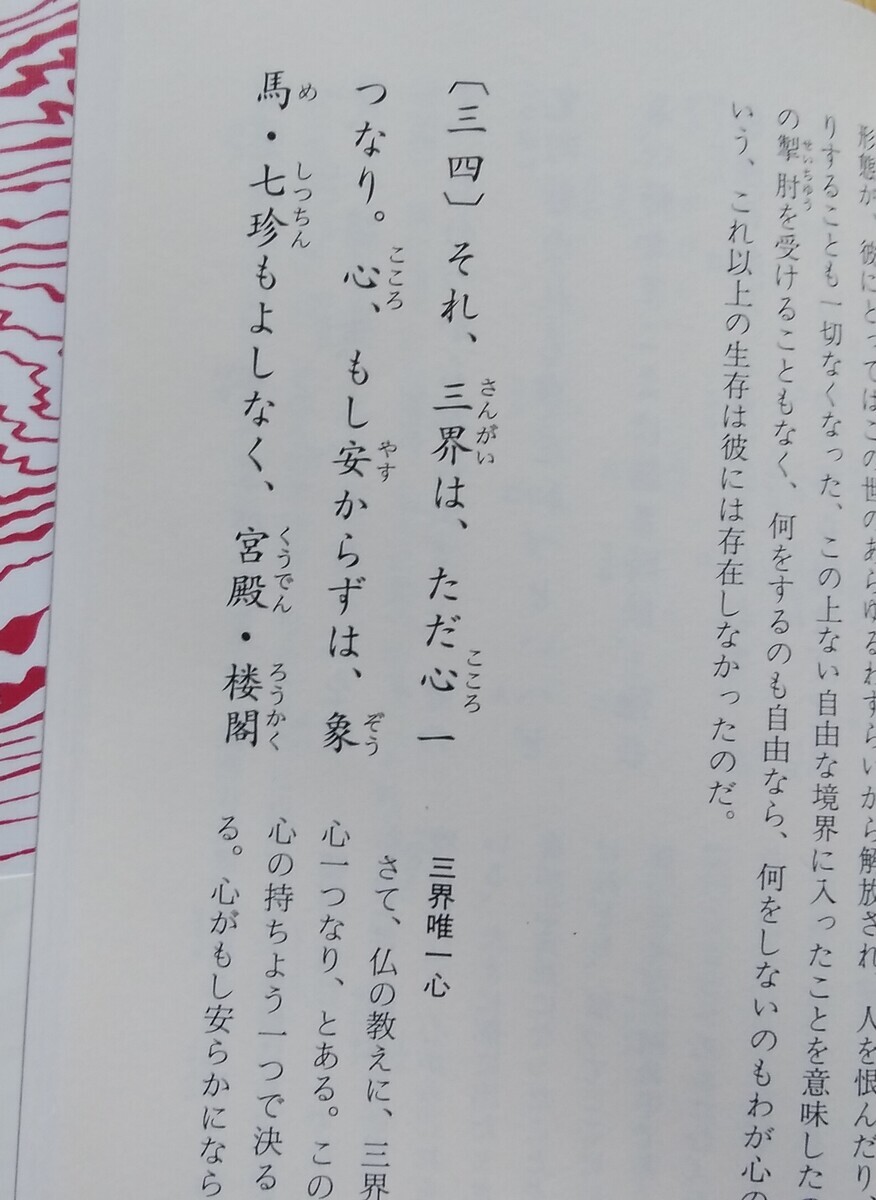 形態が、彼にとってはこの世のあらゆるわずらいから解放され、人を恨んだり、
りすることも一切なくなった、この上ない自由な境界に入ったことを意味した
の掣肘を受けることもなく、何をするのも自由なら、何をしないのもわが心の
せいちゆう
いう、これ以上の生存は彼には存在しなかったのだ。
〔三四〕それ、三界は、ただ心一
さんがい
こころ
つなり。心、もし安からずは、象
こころ
やす
ぞう
馬・七珍もよしなく、宮殿・楼閣
め
しつちん
くうでん
ろうかく
三界唯一心
さて、仏の教えに、三界
心一つなり、とある。この
心の持ちよう一つで決る
る。心がもし安らかになら